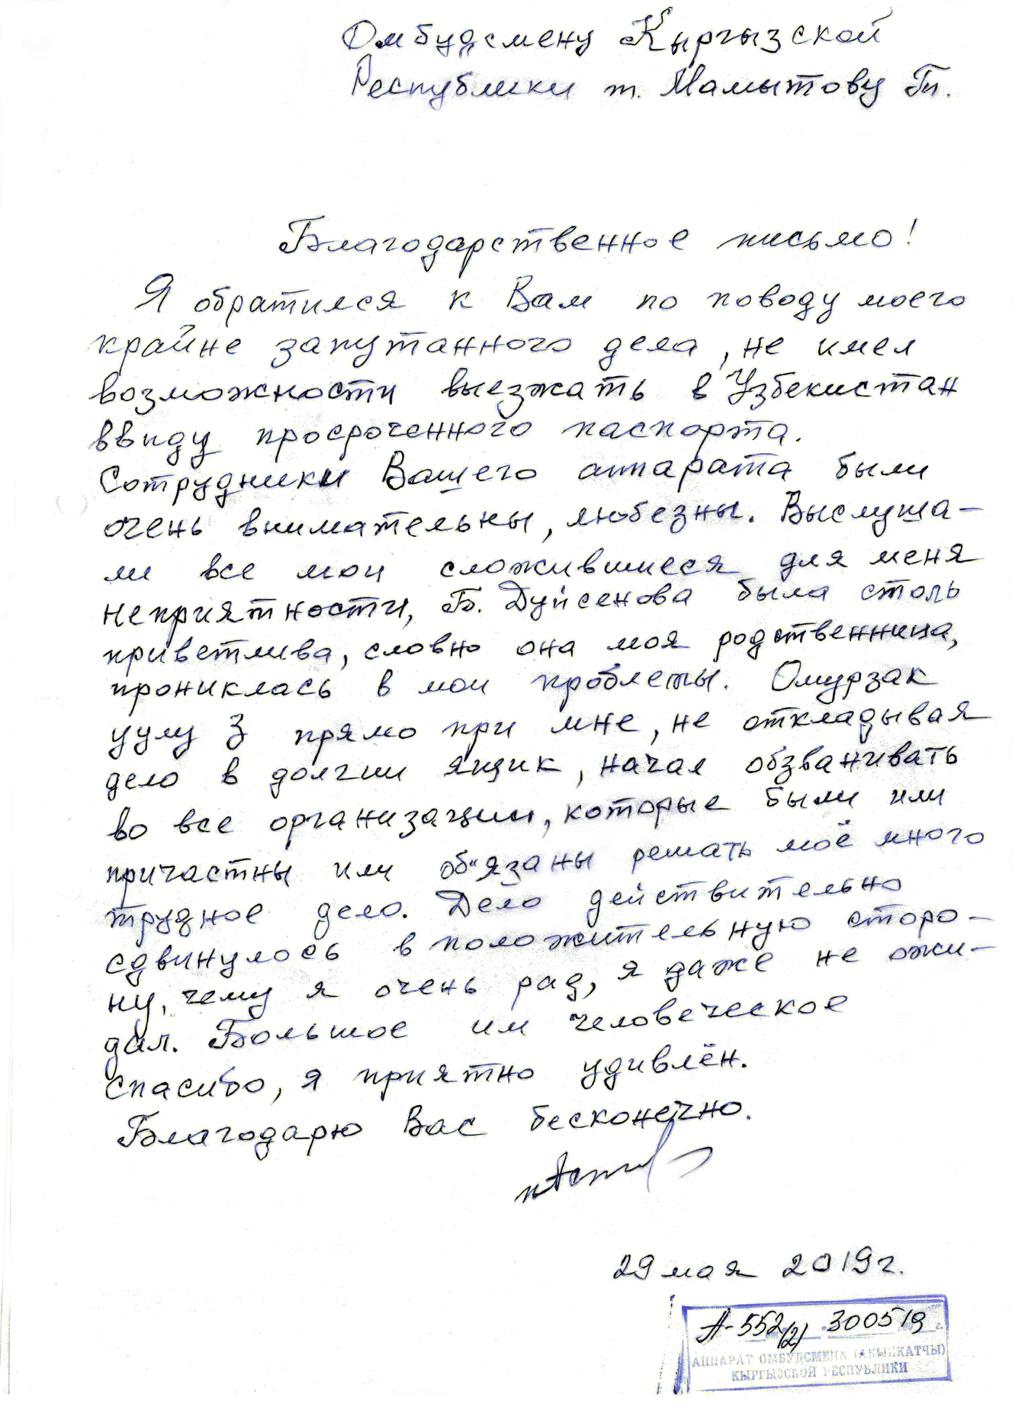 Омбудсмену Кыргызской
Республики т. Мамытову Тп.
Благодарственное письмо!
Я обратился к Вам по поводу моего
крайне запутанного дела, не имел
возможности выезжать в Узбекистан
ввиду просроченного паспорта.
Сотрудники Вашего аппарата были
очень внимательны, любезны. Выслуша-
ли все мои сложившиеся для меня
неприятности, Б. Дуйсенова была столь
приветлива, словно она моя родственница,
прониклась в мои проблемы. Омурзак
уулу З прямо при мне, не откладывая
дело в долгии ящик, начал обзванивать
во все организации, которые были или
причастны или об"язаны решать моё много
трудное дело. Дело действительно
сдвинулось в положительную сторо-
ну, чему я очень рад, я даже не ожи-
дал. Большое им человеческое
спасибо, я приятно удивлён.
Благодарю Вас бесконечно.
29 мая 2019г.
А-552/2/ 300519
АППАРАТ ОМБУДСМЕНА (АКЫЙКАТЧЫ)
КЫРГЫЗСКОЙ РЕСПУБЛИКИ